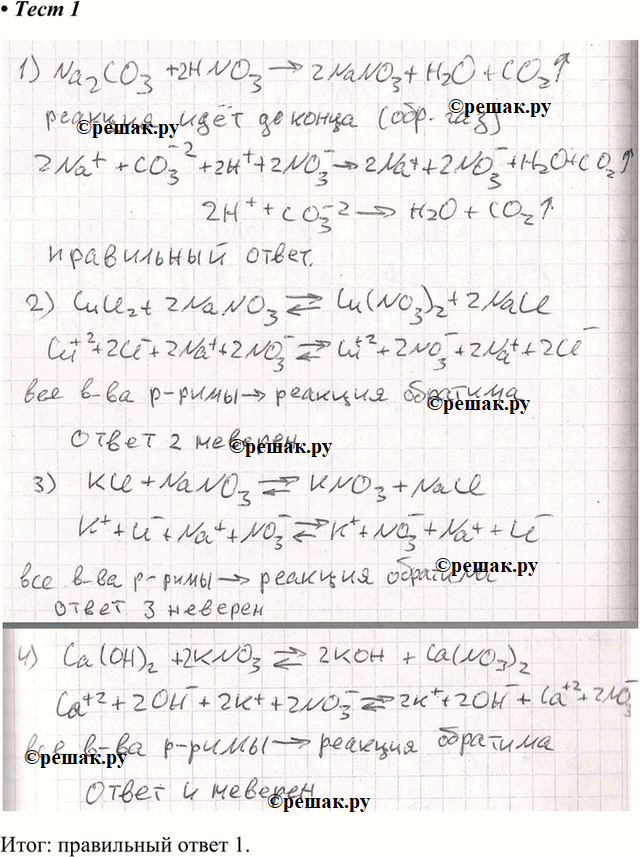 • Тест 1
1) Na₂CO₃ + 2HNO₃ → 2NaNO₃ + H₂O + CO₂↑
©решак.ру
реакция идёт до конца (обр. газ)
©решак.ру
2Na⁺ + CO₃⁻² + 2H⁺ + 2NO₃⁻ → 2Na⁺ + 2NO₃⁻ + H₂O + CO₂↑
2H⁺ + CO₃⁻² → H₂O + CO₂↑
правильный ответ.
2) CuCl₂ + 2NaNO₃ ⇄ Cu(NO₃)₂ + 2NaCl
Cu⁺² + 2Cl⁻ + 2Na⁺ + 2NO₃⁻ ⇄ Cu⁺² + 2NO₃⁻ + 2Na⁺ + 2Cl⁻
все в-ва р-римы → реакция обратима
©решак.ру
Ответ 2 неверен
©решак.ру
3) KCl + NaNO₃ ⇄ KNO₃ + NaCl
K⁺ + Cl⁻ + Na⁺ + NO₃⁻ ⇄ K⁺ + NO₃⁻ + Na⁺ + Cl⁻
©решак.ру
все в-ва р-римы → реакция обратима
ответ 3 неверен
4) Ca(OH)₂ + 2KNO₃ ⇄ 2KOH + Ca(NO₃)₂
Ca⁺² + 2OH⁻ + 2K⁺ + 2NO₃⁻ ⇄ 2K⁺ + 2OH⁻ + Ca⁺² + 2NO₃⁻
все в-ва р-римы → реакция обратима
©решак.ру
Ответ 4 неверен
©решак.ру
Итог: правильный ответ 1.